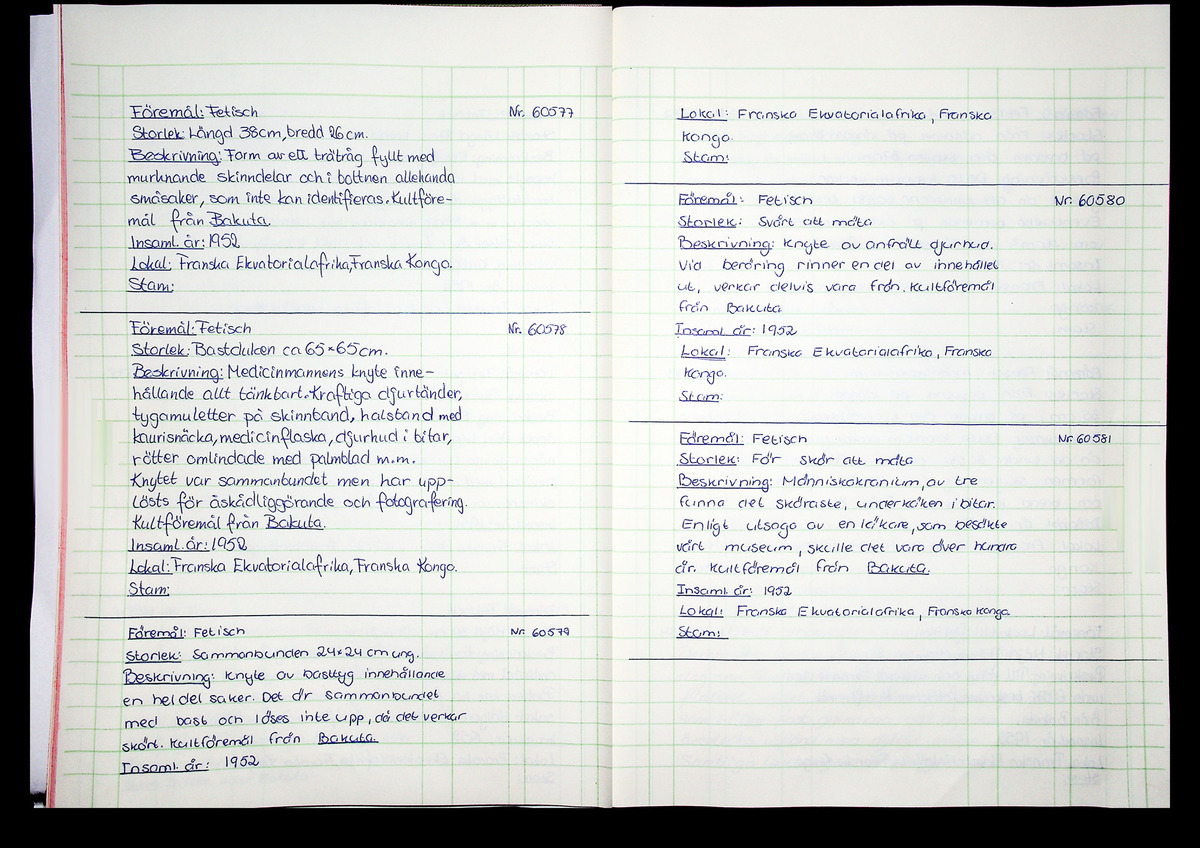 Föremål: Fetisch Nr. 60577
Storlek: Längd 38cm, bredd 26cm.
Beskrivning: Form av ett träträg fyllt med
murknande skinndelar och i bottnen allehanda
småsaker, som inte kan identifieras. Kultföre-
mål från Bakuta.
Insaml. år: 1952
Lokal: Franska Ekvatorialafrika, Franska Kongo.
Stam:
Föremål: Fetisch Nr. 60578
Storlek: Bastduken ca 65×65cm.
Beskrivning: Medicinmannens knyte inne-
hållande allt tänkbart. Kraftiga djurtänder,
tygamuletter på skinnband, halsband med
kaurisnäcka, medicinflaska, djurhud i bitar,
rötter omlindade med palmblad m.m.
Knytet var sammanbundet men har upp-
lösts för åskådliggörande och fotografering.
Kultföremål från Bakuta.
Insaml. år: 1952
Lokal: Franska Ekvatorialafrika, Franska Kongo.
Stam:
Föremål: Fetisch Nr. 60579
Storlek: Sammanbunden 24×24 cm ung.
Beskrivning: Knyte av basttyg innehållande
en hel del saker. Det är sammanbundet
med bast och löses inte upp, då det verkar
skört. Kultföremål från Bakuta.
Insaml. år: 1952
Lokal: Franska Ekvatorialafrika, Franska
Kongo.
Stam:
Föremål: Fetisch Nr. 60580
Storlek: Svårt att mäta
Beskrivning: Knyte av anfrätt djurhud.
Vid beröring rinner en del av innehållet
ut, verkar delvis vara frön. Kultföremål
från Bakuta
Insaml. år: 1952
Lokal: Franska Ekvatorialafrika, Franska
Kongo.
Stam:
Föremål: Fetisch Nr. 60581
Storlek: För skör att mäta
Beskrivning: Människokranium, av tre
funna det sköraste, underkäken i bitar.
Enligt utsago av en läkare, som besökte
vårt museum, skulle det vara över hundra
år. Kultföremål från Bakuta.
Insaml. år: 1952
Lokal: Franska Ekvatorialafrika, Franska Kongo.
Stam: